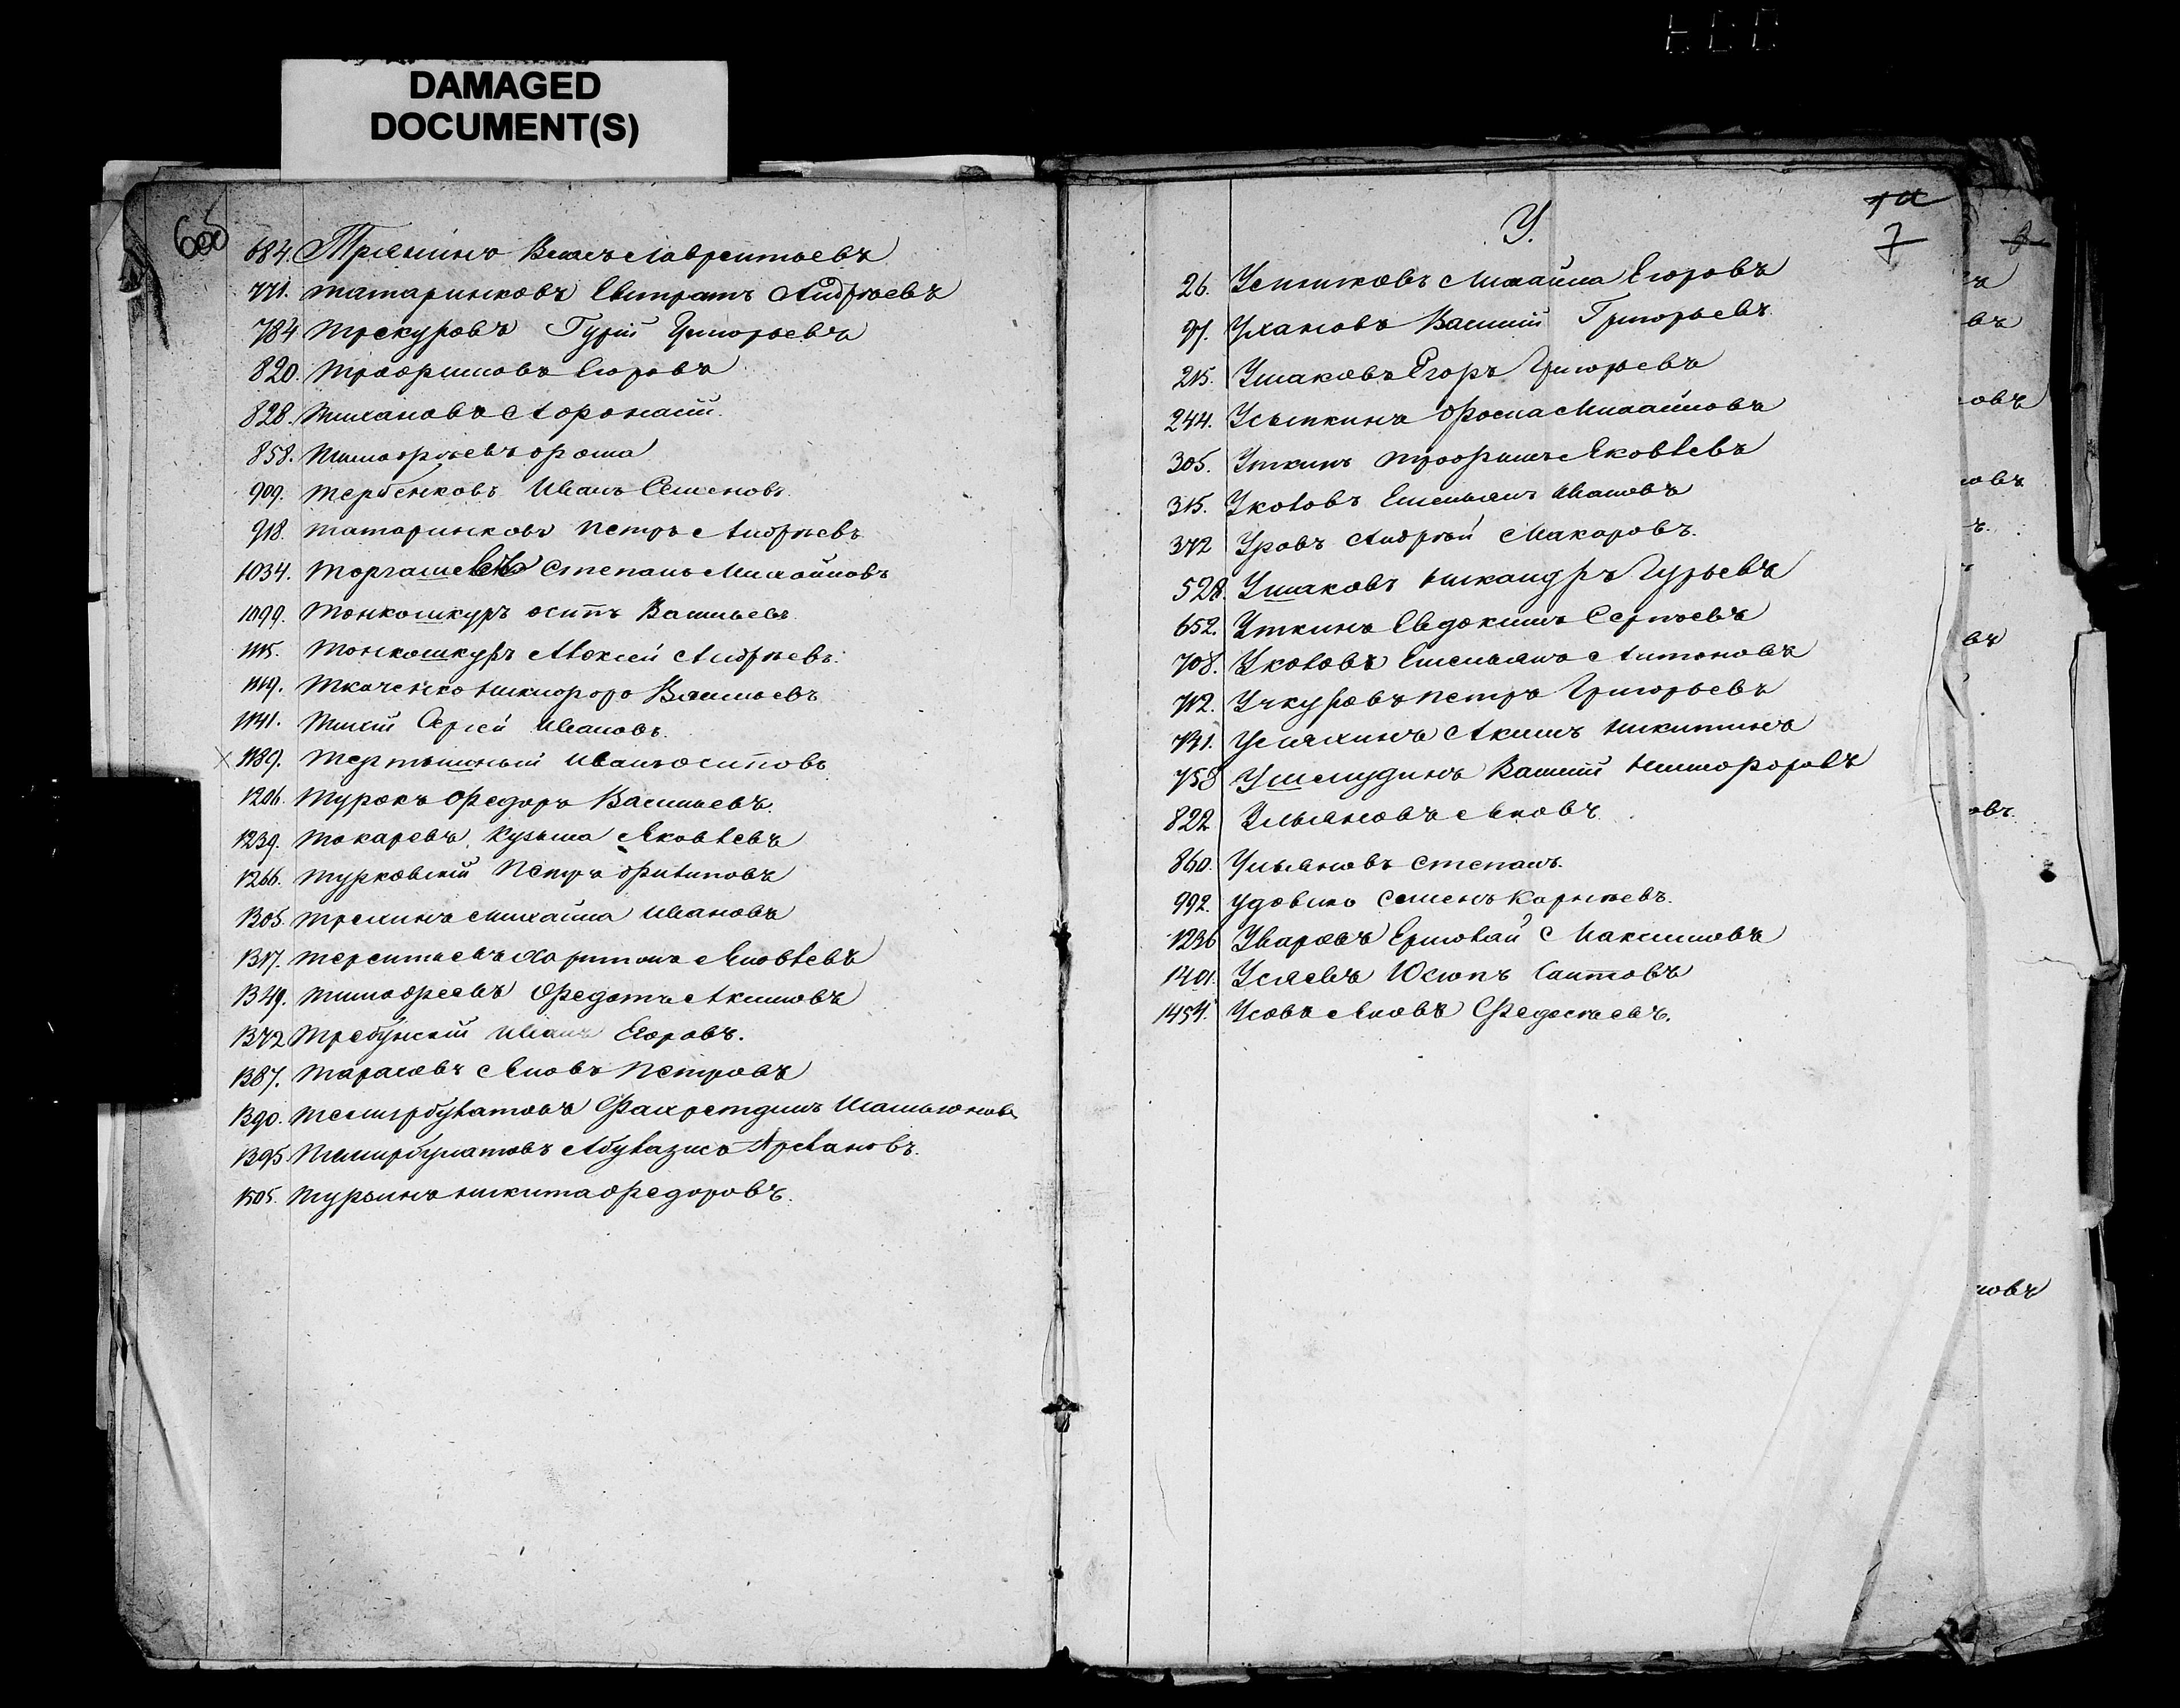 DAMAGED
DOCUMENT(S)
6об
684. Трямино Власъ Лаврентьевъ
771. Татаринковъ Евстратъ Андрѣевъ
784 Трекуровъ Гурій Григорьевъ
820. Трофимовъ Егоръ
828. Тихановъ Афонасій
858. Тимофѣевъ Фома
909. Тербенковъ Иванъ Семеновъ
918. Татаринковъ Петръ Андрѣевъ
1034. Торгашевъ Степанъ Михайловъ
1099. Тонкошкуръ Осипъ Васильевъ
1115. Тонкошкуръ Алексѣй Андрѣевъ
1119. Ткаченко Никифоръ Васильевъ
1141. Тихій Сергѣй Ивановъ
1189. Тертышный Иванъ Осиповъ
1206. Турокъ Федоръ Васильевъ
1239. Токаревъ Кузьма Яковлевъ
1266. Турковскій Петръ Филиповъ
1305. Трехинъ Михайла Ивановъ
1317. Терентьевъ Харитонъ Яковлевъ
1349. Тимофеевъ Федотъ Акимовъ
1372 Требунскій Иванъ Егоровъ.
1387. Тарасовъ Яковъ Петровъ
1390. Темирбулатовъ Фахретдинъ
1395. Темирбулатовъ Абулазисъ
1505. Турьинъ Никита Федоровъ.
У.
7
26. Устиновъ Михайла Егоровъ
97. Ухановъ Василій Григорьевъ
215. Ушаковъ Егоръ Григорьевъ
244. Улыткинъ Фома Михайловъ
305. Уткинъ Трофимъ Яковлевъ
315. Уколовъ Емельянъ Ивановъ
372 Уровъ Андрѣй Макаровъ.
528. Ушаковъ Никандръ Гурьевъ
652. Уткинъ Евдокимъ Сергѣевъ
708. Уколовъ Емельянъ Антоновъ
712. Учкуровъ Петръ Григорьевъ
731. Акимъ Никитинъ
758 Ушмудинъ Василій Никифоровъ
822 Ульяновъ Яковъ
860. Ульяновъ Степанъ.
992. Удовико Семенъ Корнѣевъ.
1236 Уваровъ Ермолай Максимовъ
1401. Усяевъ Юсюпъ Саитовъ
1454. Усовъ Яковъ Федосѣевъ.